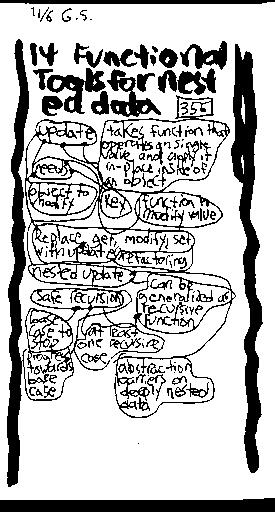 11/6 G.S.
14 Functional
Tools for nest
ed data 355
update
takes function that
operates on single
value and apply it
in-place inside of
an object
needs
object to
modify
key
function to
modify value
Replace get, modify, set
with update refactoring
nested update
can be
generalized as
recursive
function
safe recursion
base
case to
stop
at least
one recursive
case
progress
towards
base
case
abstraction
barriers on
deeply nested
data